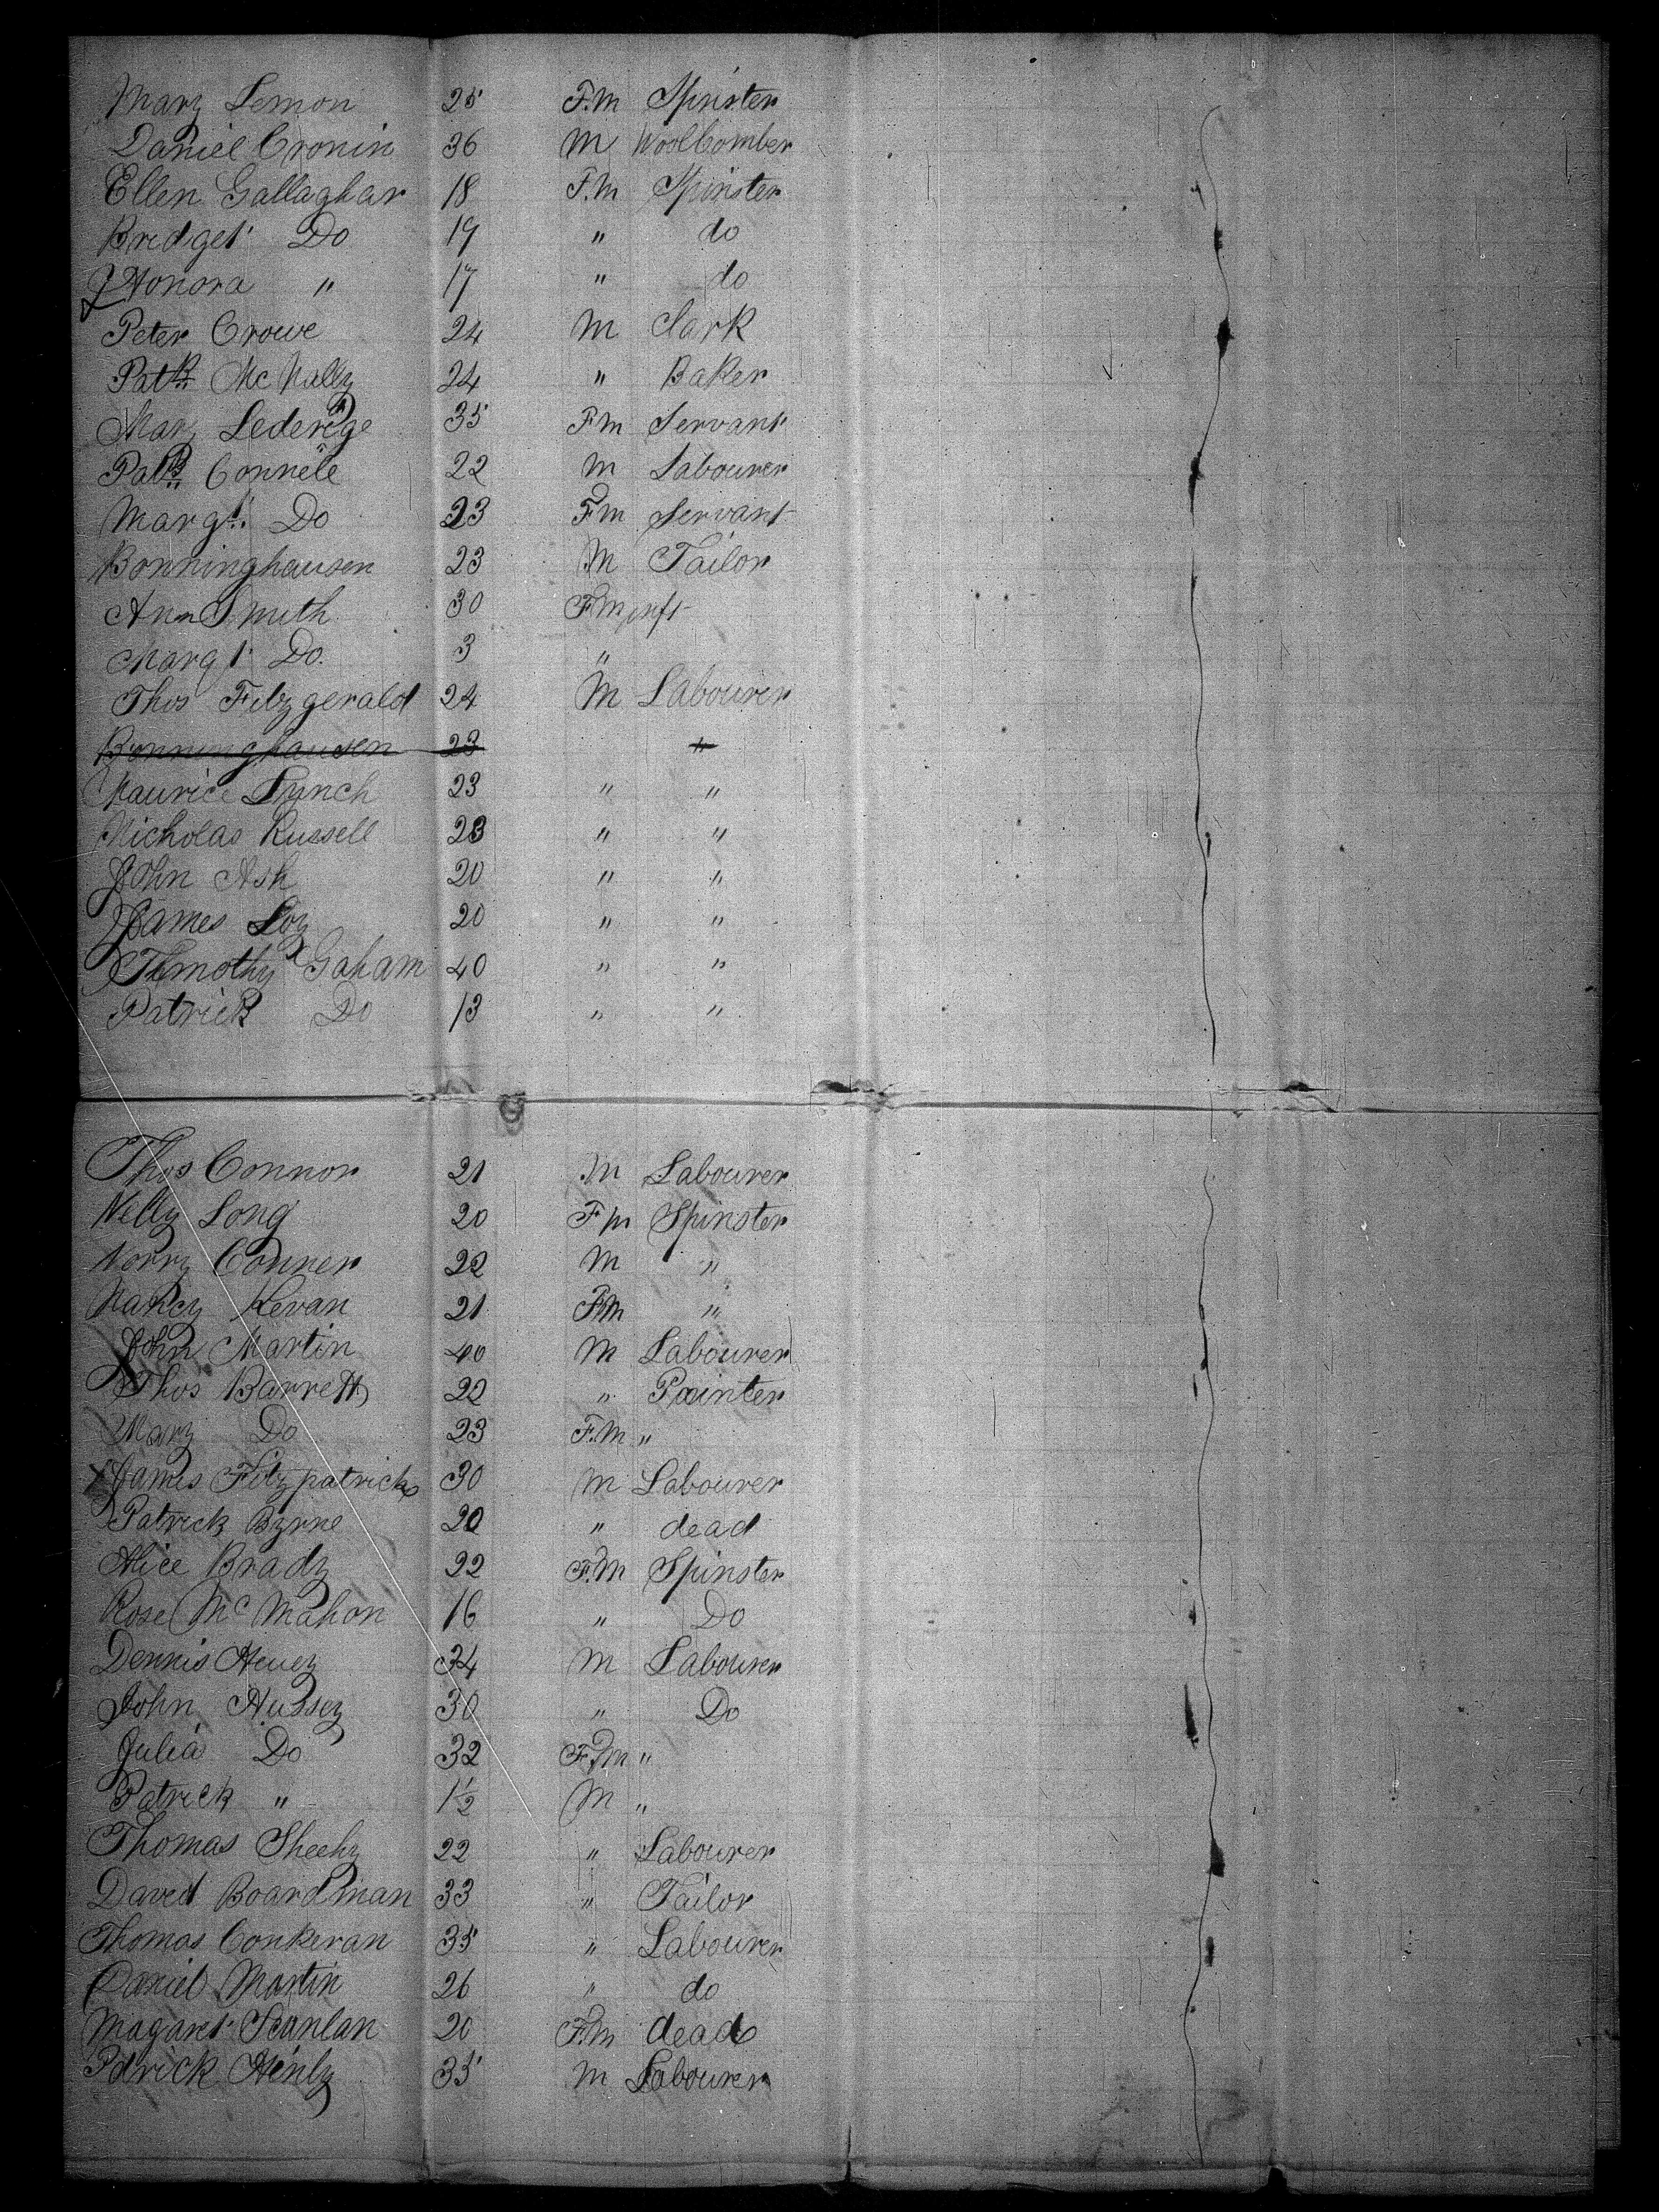 Mary Lemon 25 F.m Spinster
Daniel Cronin 36 M WoolComber
Ellen Gallaghar 18 F.m Spinster
Bridget Do 19 " do
Honora " 17 " do
Peter Crowe 24 M Clark
Patk McNally 24 " Baker
Mary Lederige 35 Fm Servant
Patk Connele 22 M Labourer
Margt. Do 23 Fm Servant
Bonninghausen 23 M Tailor
Ann Smith 30 Fm
Margt Do. 3 "
Thos Fitzgerald 24 M Labourer
Bonninghausen 23 "
Maurice Lynch 23 " "
Nicholas Russell 23 " "
John Ash 20 " "
James Loy 20 " "
Timothy Gaham 40 " "
Patrick Do 13 " "
Thos Connor 21 M Labourer
Nelly Long 20 Fm Spinster
Norry Conner 22 M "
Nancy Kevan 21 Fm "
John Martin 40 M Labourer
Thos Barrett 22 " Painter
Mary Do 23 F.m "
James Fitzpatrick 30 M Labourer
Patrick Byrne 20 " dead
Alice Brady 22 F.M Spinster
Rose McMahon 16 " Do
Dennis 34 M Labourer
John Hussey 30 " Do
Julia Do 32 F.m "
Patrick " 1½ M "
Thomas Sheehy 22 " Labourer
David Boardman 33 " Tailor
Thomas Conkeran 35 " Labourer
Daniel Martin 26 " do
Magaret Scanlan 20 F.m dead
Patrick Henly 35 M Labourer